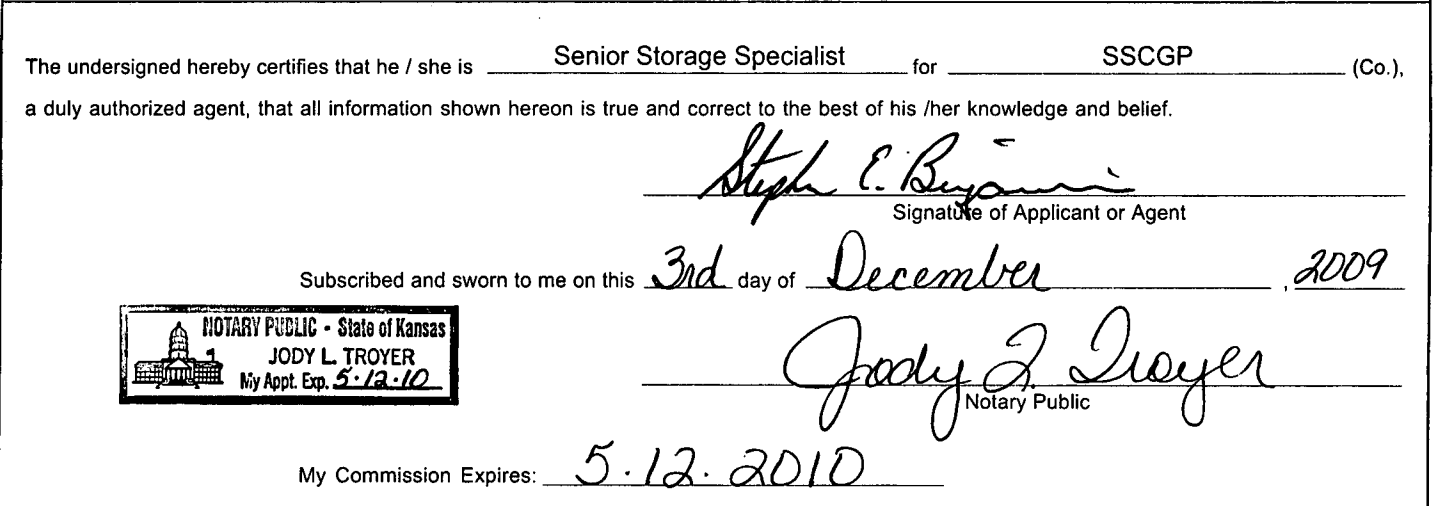 The undersigned hereby certifies that he / she is Senior Storage Specialist for SSCGP (Co.),
a duly authorized agent, that all information shown hereon is true and correct to the best of his /her knowledge and belief.
Stephen E. Benjamin
Signature of Applicant or Agent
Subscribed and sworn to me on this 3rd day of December , 2009
NOTARY PUBLIC - State of Kansas
JODY L. TROYER
My Appt. Exp. 5-12-10
Jody L. Troyer
Notary Public
My Commission Expires: 5.12.2010